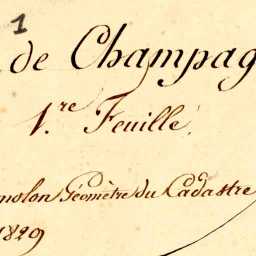 1
de Champag
1.re Feuille.
molon Géomètre du Cadastre
1829